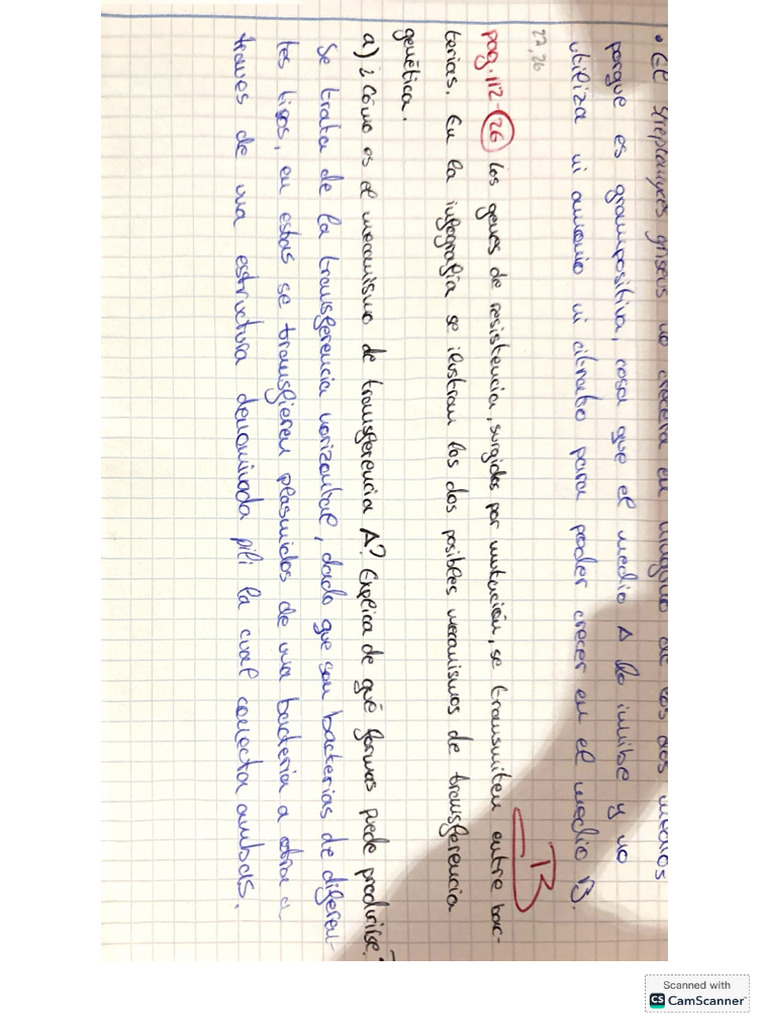 • El Streptomyces griseus no crecerá en ninguno de los dos medios
porque es grampositiva, cosa que el medio A lo inhibe y no
utiliza ni amonio ni citrato para poder crecer en el medio B.
22, 26
B
pag. 112-26 Los genes de resistencia, surgidos por mutación, se transmiten entre bac-
terias. En la infografía se ilustran los dos posibles mecanismos de transferencia
genética.
a) ¿Cómo es el mecanismo de transferencia A? Explica de qué formas puede producirse.
Se trata de la transferencia horizontal, dado que son bacterias de diferen-
tes tipos, en estas se transfieren plasmidos de una bacteria a otra a
traves de una estructura denominada pili la cual conecta ambas.
Scanned with
CS CamScanner